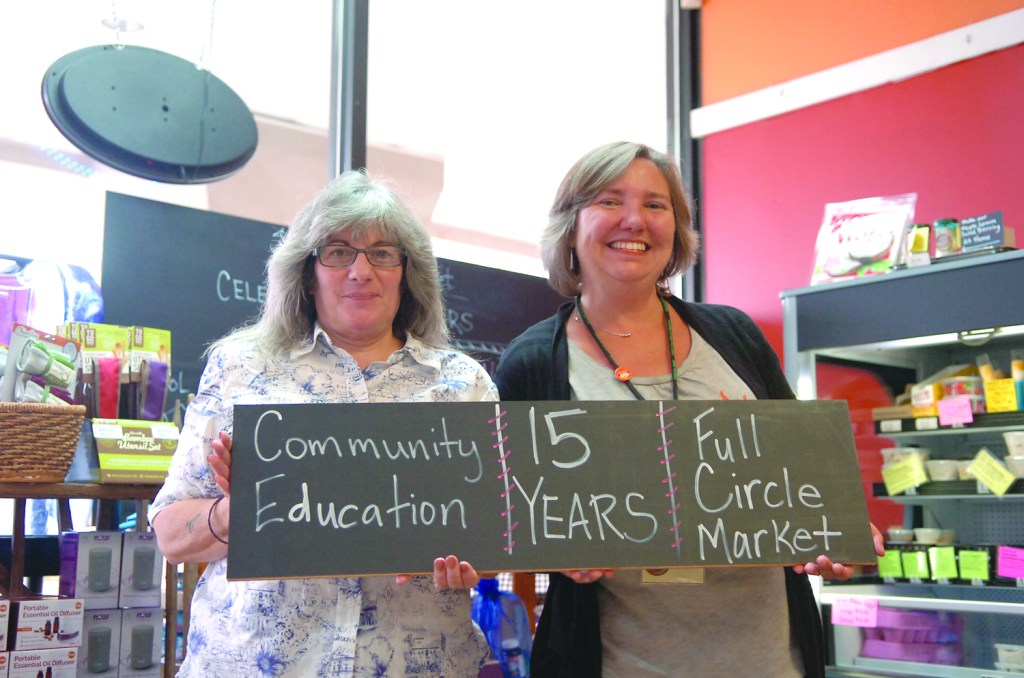 Community
Education
15
YEARS
Full
Circle
Market
CELE
RS
OL
Bamboo
Utensil Set
NOW
NOW
Portable
Essential Oil Diffuser
Portable
Essential Oil Diffuser